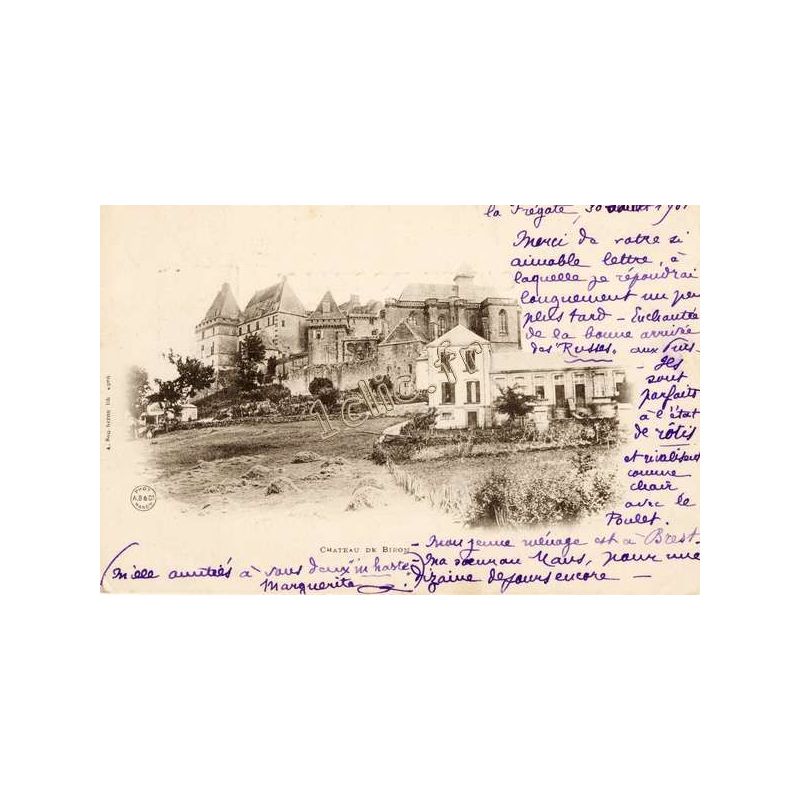 la Frégate, 30 août 1901
Merci de votre si
aimable lettre, à
laquelle je répondrai
longuement un peu
plus tard – Enchantée
de la bonne arrivée
des "Russes. aux
Ils
sont
parfaits
à l'état
de rôtis
et rivalisent
comme
chair
avec le
Poulet.
1clic.fr
PHOT.
A.B & Cie
NANCY
CHATEAU DE BIRON
– Mon jeune ménage est à Brest –
– Ma soeur au Mans, pour une
dizaine de jours encore –
(Mille amitiés à vous deux "in haste"
Marguerite)